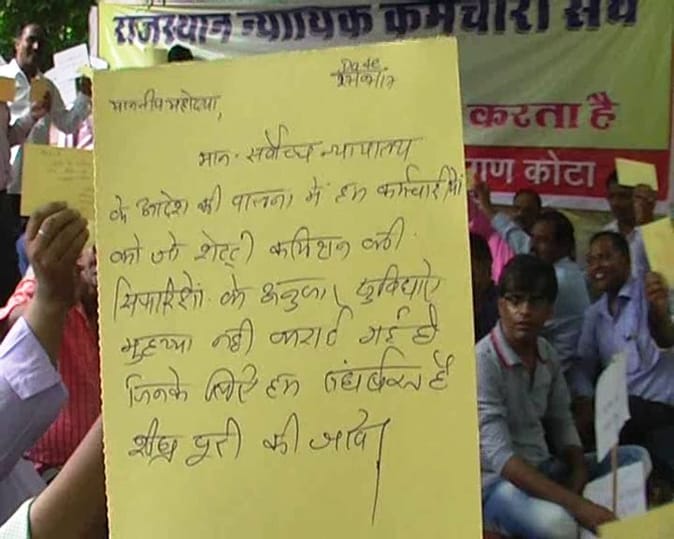 राजस्थान न्यायिक कर्मचारी संघ
करता है
कोटा
Date
माननीय महोदया,
मान. सर्वोच्च न्यायालय
के आदेश की पालना में हम कर्मचारीयों
को जो शेट्टी कमिशन की
सिफारिशों के अनुरूप सुविधाऐ
मुहय्या नहीं कराई गई है
जिनके लिऐ हम संघर्षरत है
शीघ्र पूरी की जावे।